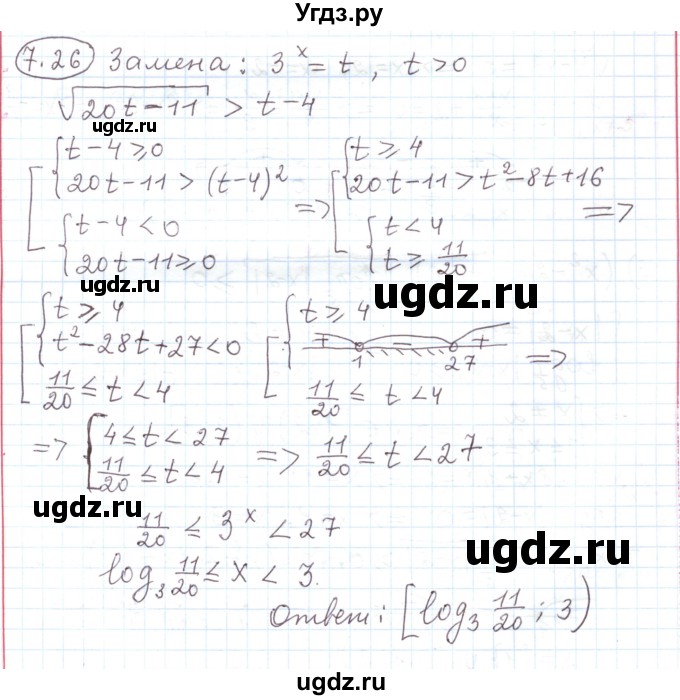 Угдз.ру
7.26 Замена: 3^x = t, t > 0
√(20t − 11) > t − 4
ugdz.ru
[ { t − 4 ⩾ 0
20t − 11 > (t − 4)^2
{ t − 4 < 0
20t − 11 ⩾ 0
=> [ { t ⩾ 4
20t − 11 > t^2 − 8t + 16
{ t < 4
t ⩾ 11/20
=>
ugdz.ru
ugdz.ru
[ { t ⩾ 4
t^2 − 28t + 27 < 0
11/20 ≤ t < 4
[ { t ⩾ 4
+ 1 − 27 +
11/20 ≤ t < 4
=>
ugdz.ru
=> { 4 ≤ t < 27
11/20 ≤ t < 4
=> 11/20 ≤ t < 27
11/20 ≤ 3^x < 27
ugdz.ru
log₃ 11/20 ≤ x < 3.
Ответ: [log₃ 11/20 ; 3)
ugdz.ru
ugdz.ru